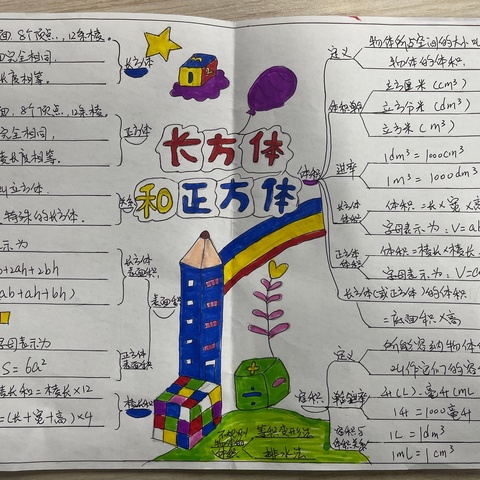 面 8个顶点，12条棱。
完全相同，
长度相等。
长方体
面，8个顶点，12条棱。
完全相同，
棱长度相等。
正方体
立方体
特殊的长方体.
关系
示为
+2ah+2bh
ab+ah+bh)
长方体
表面积
字母表示为
S=6a²
正方体
表面积
表面积
棱长和=棱长×12
=(长+宽+高)×4
棱长和
长方体
和正方体
体积
定义
物体所占空间的大小叫
物体的体积.
体积单位
立方厘米(cm³)
立方分米(dm³)
立方米(m³)
进率
1dm³=1000cm³
1m³=1000dm³
长方体
体积
体积=长×宽×高
字母表示为:V=ab
正方体
体积
体积=棱长×棱长
字母表示为:V=a
长方体(或正方体)的体积
=底面积×高
容积
定义
所能容纳物体
叫作它们的容
升(L).毫升(mL
1升=1000毫升
容积与
体积关系
1L=1dm³
1mL=1cm³
不规则
物体的
体积
等积变形法
排水法